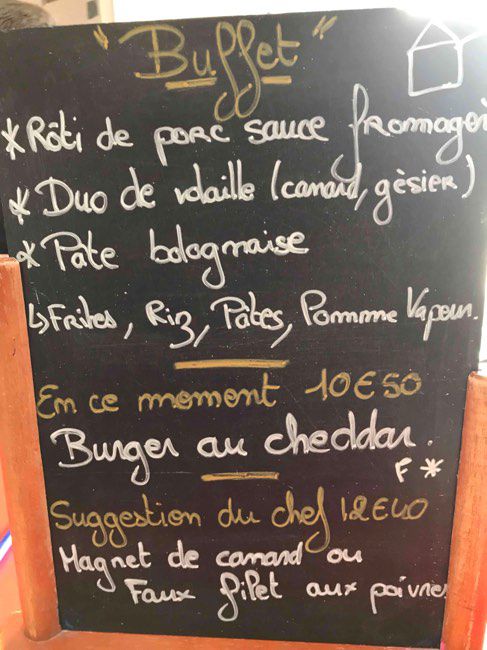 "Buffet"
* Rôti de porc sauce fromager
* Duo de volaille (canard, gèsier)
* Pate bolognaise
↳ Frites, Riz, Pâtes, Pomme Vapeur.
En ce moment 10€50
Burger au cheddar.
F *
Suggestion du chef 12€40
Magret de canard ou
Faux filet aux poivre